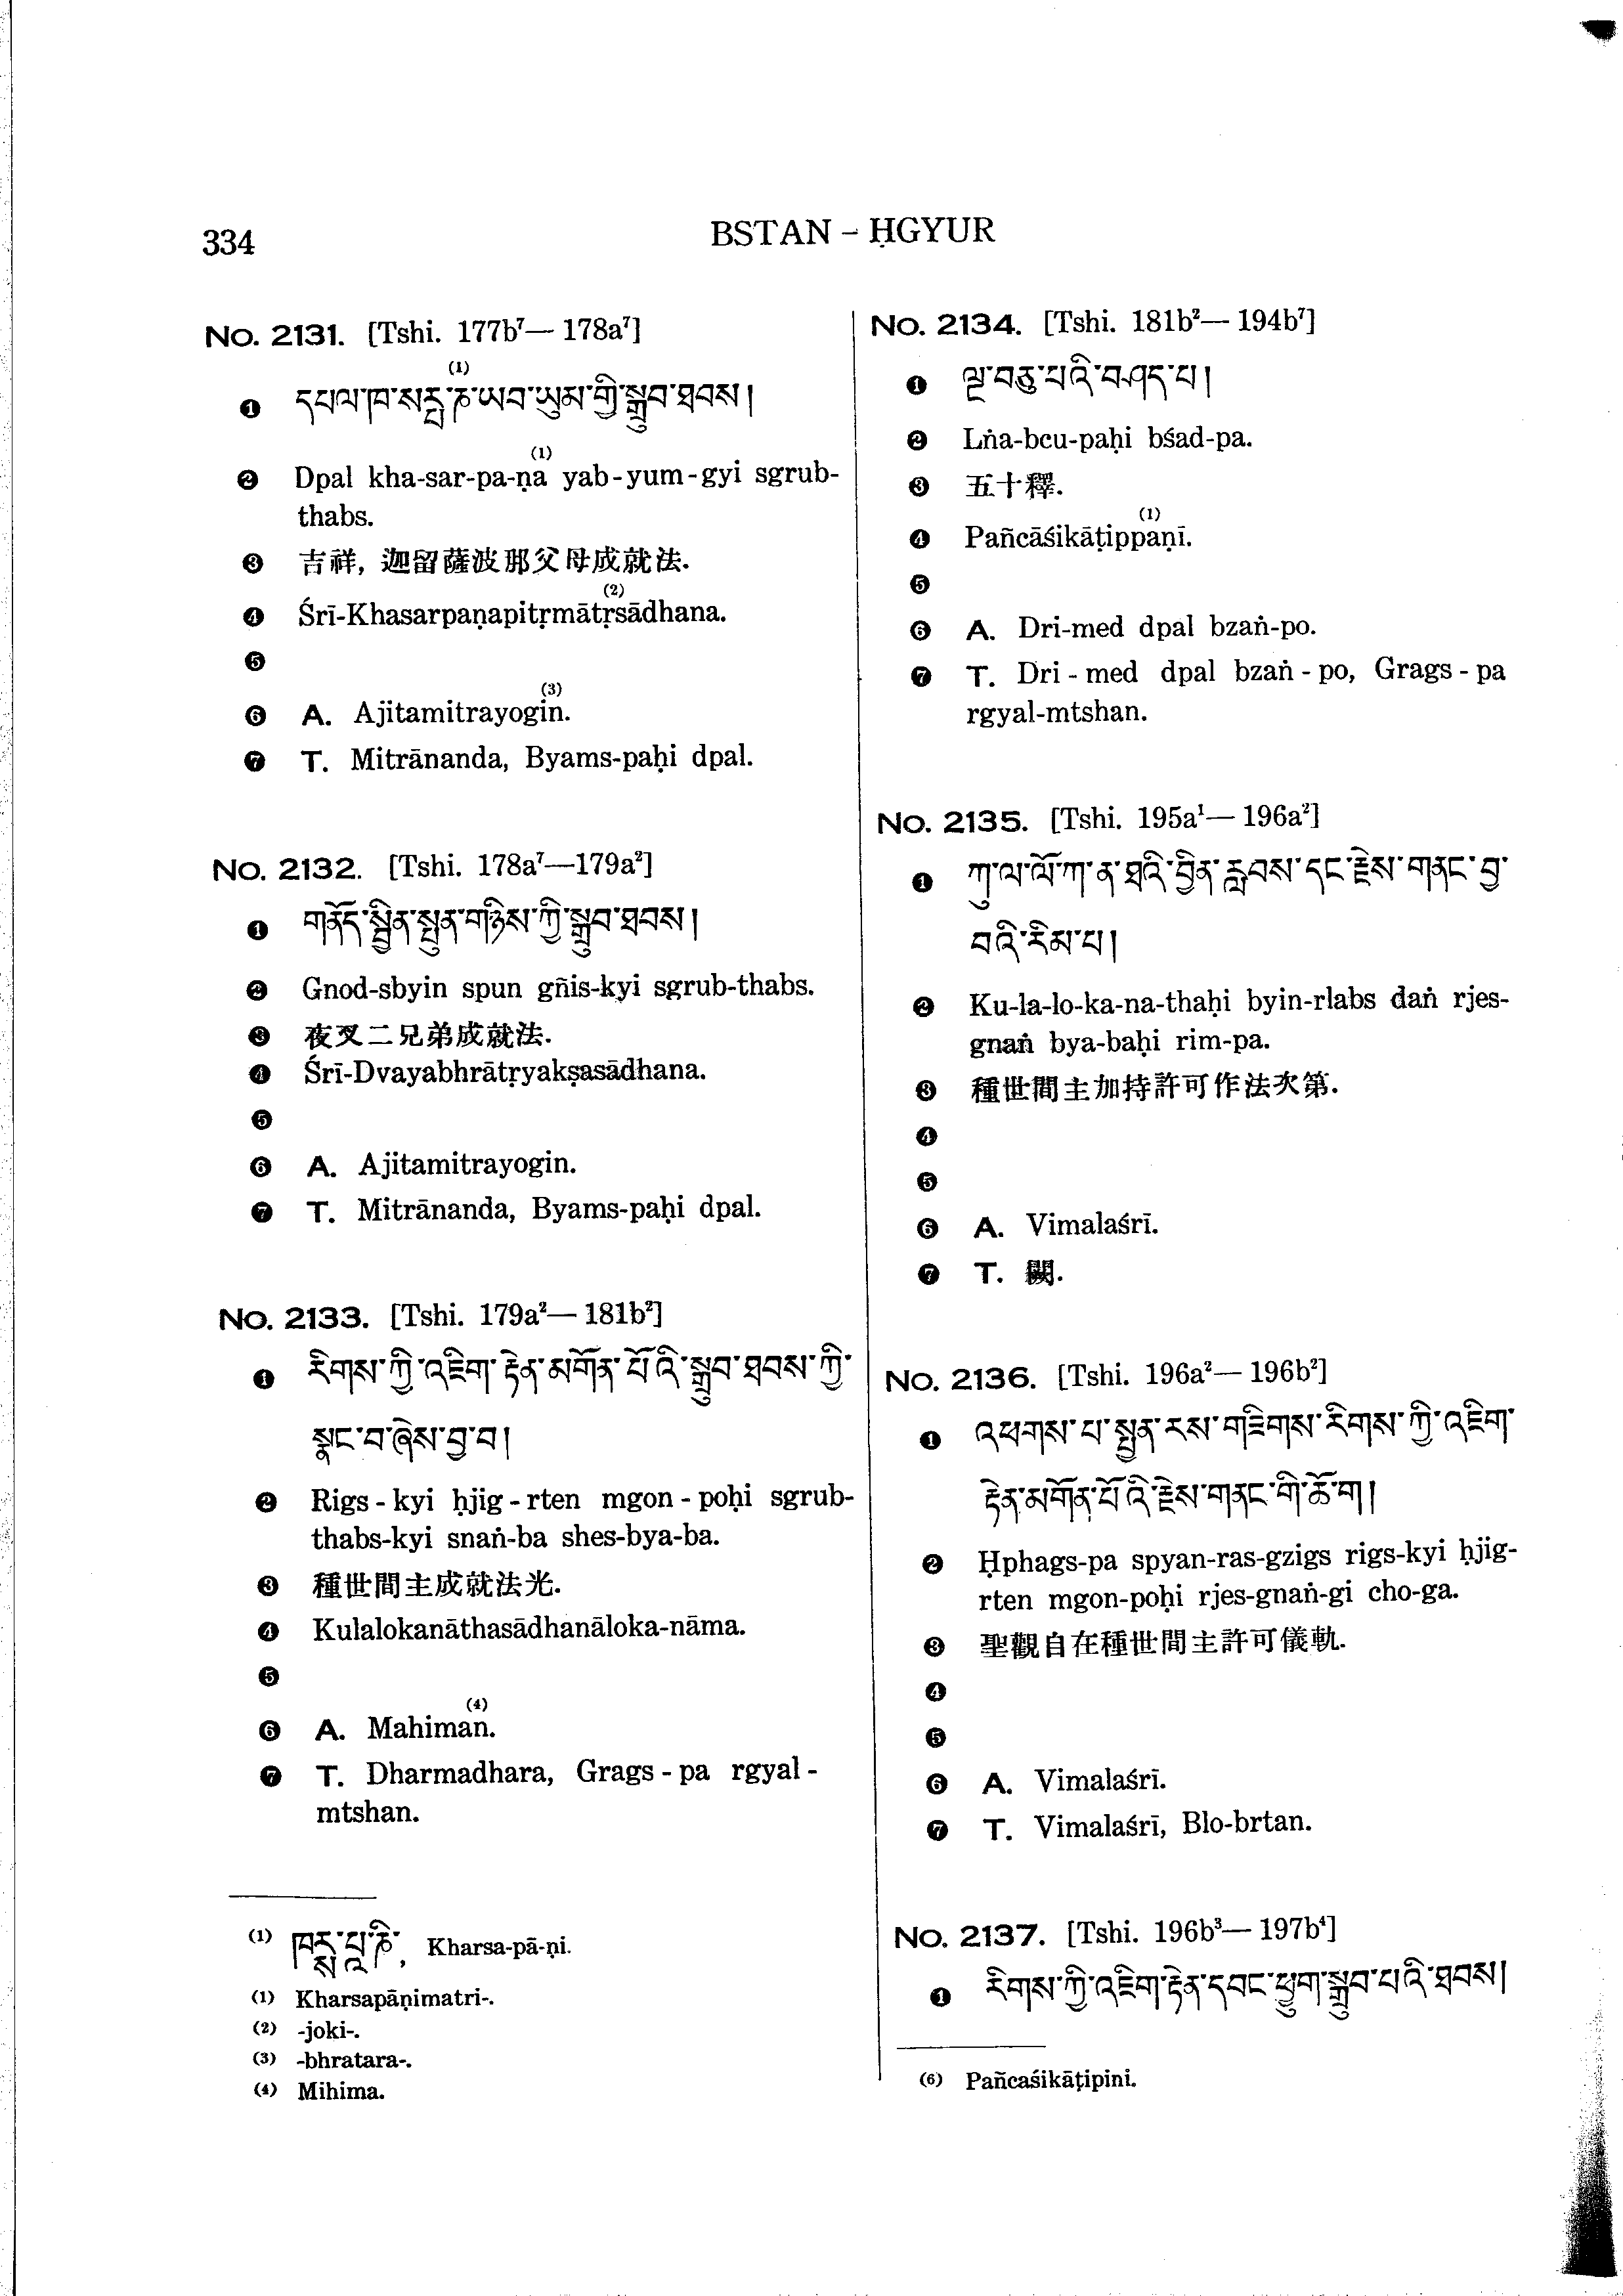 334
BSTAN – ḤGYUR
No. 2131. [Tshi. 177b⁷— 178a⁷]
(1)
❶ དཔལ་ཁ་སརྤ་ཎ་ཡབ་ཡུམ་གྱི་སྒྲུབ་ཐབས།
(1)
❷ Dpal kha-sar-pa-ṇa yab-yum-gyi sgrub-
thabs.
❸ 吉祥, 迦留薩波那父母成就法.
(2)
❹ Śrī-Khasarpaṇapitṛmātṛsādhana.
❺
(3)
❻ A. Ajitamitrayogin.
❼ T. Mitrānanda, Byams-paḥi dpal.
No. 2132. [Tshi. 178a⁷—179a²]
❶ གནོད་སྦྱིན་སྤུན་གཉིས་ཀྱི་སྒྲུབ་ཐབས།
❷ Gnod-sbyin spun gñis-kyi sgrub-thabs.
❸ 夜叉二兄弟成就法.
❹ Śrī-Dvayabhrātṛyakṣasādhana.
❺
❻ A. Ajitamitrayogin.
❼ T. Mitrānanda, Byams-paḥi dpal.
No. 2133. [Tshi. 179a²— 181b²]
❶ རིགས་ཀྱི་འཇིག་རྟེན་མགོན་པོའི་སྒྲུབ་ཐབས་ཀྱི་
སྣང་བ་ཞེས་བྱ་བ།
❷ Rigs-kyi ḥjig-rten mgon-poḥi sgrub-
thabs-kyi snaṅ-ba shes-bya-ba.
❸ 種世間主成就法光.
❹ Kulalokanāthasādhanāloka-nāma.
❺
(4)
❻ A. Mahiman.
❼ T. Dharmadhara, Grags-pa rgyal-
mtshan.
(1) Kharsa-pā-ṇi.
(1) Kharsapāṇimatri-.
(2) -joki-.
(3) -bhratara-.
(4) Mihima.
No. 2134. [Tshi. 181b²— 194b⁷]
❶ ལྔ་བཅུ་པའི་བཤད་པ།
❷ Lṅa-bcu-paḥi bśad-pa.
❸ 五十釋.
(1)
❹ Pañcāśikāṭippaṇī.
❺
❻ A. Dri-med dpal bzaṅ-po.
❼ T. Dri-med dpal bzaṅ-po, Grags-pa
rgyal-mtshan.
No. 2135. [Tshi. 195a¹— 196a²]
❶ ཀུ་ལ་ལོ་ཀ་ན་ཐའི་བྱིན་རླབས་དང་རྗེས་གནང་བྱ་
བའི་རིམ་པ།
❷ Ku-la-lo-ka-na-thaḥi byin-rlabs daṅ rjes-
gnaṅ bya-baḥi rim-pa.
❸ 種世間主加持許可作法次第.
❹
❺
❻ A. Vimalaśrī.
❼ T. 闕.
No. 2136. [Tshi. 196a²— 196b²]
❶ འཕགས་པ་སྤྱན་རས་གཟིགས་རིགས་ཀྱི་འཇིག་
རྟེན་མགོན་པོའི་རྗེས་གནང་གི་ཆོ་ག།
❷ Ḥphags-pa spyan-ras-gzigs rigs-kyi ḥjig-
rten mgon-poḥi rjes-gnaṅ-gi cho-ga.
❸ 聖觀自在種世間主許可儀軌.
❹
❺
❻ A. Vimalaśrī.
❼ T. Vimalaśrī, Blo-brtan.
No. 2137. [Tshi. 196b³— 197b⁴]
❶ རིགས་ཀྱི་འཇིག་རྟེན་དབང་ཕྱུག་སྒྲུབ་པའི་ཐབས།
(6) Pañcaśikāṭipini.